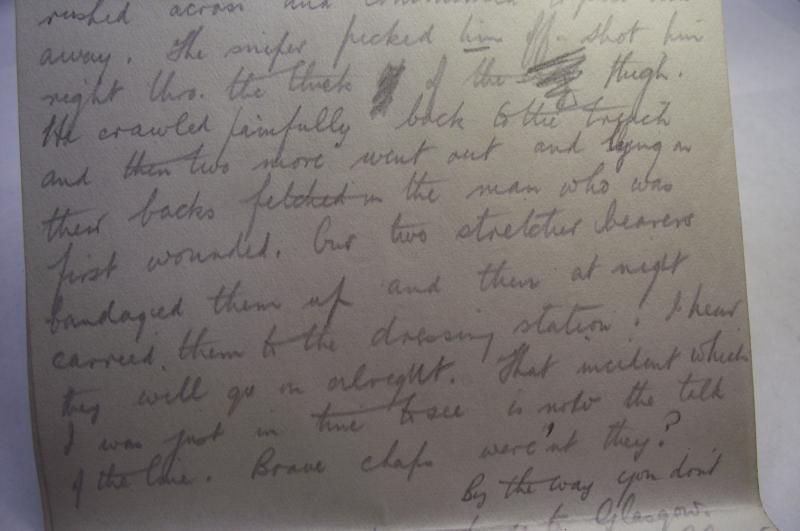 rushed across and
away. The sniper picked him off - shot him
right thro. the thick of the thigh.
He crawled painfully back to the trench
and then two more went out and lying on
their backs fetched in the man who was
first wounded. Our two stretcher bearers
bandaged them up and then at night
carried them to the dressing station. I hear
they will go on alright. That incident which
I was just in time to see is now the talk
of the line. Brave chaps were'nt they?
By the way you don't
to Glasgow.